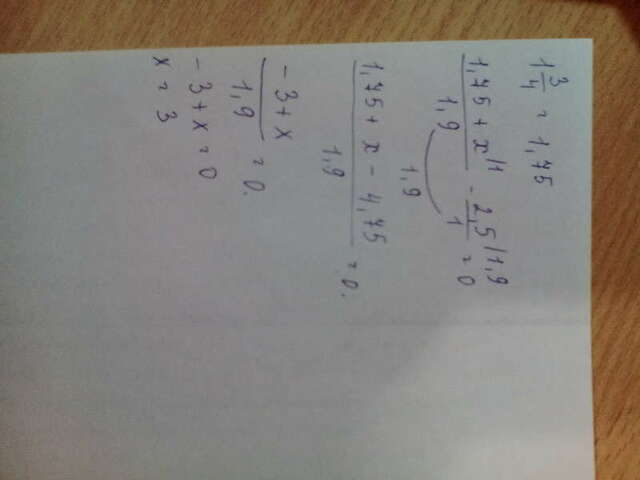 1 3/4 = 1,75
(1,75 + x^/1)/1,9 - 2,5^/1,9/1 = 0
1,9
(1,75 + x - 4,75)/1,9 = 0.
(-3 + x)/1,9 = 0.
-3 + x = 0
x = 3